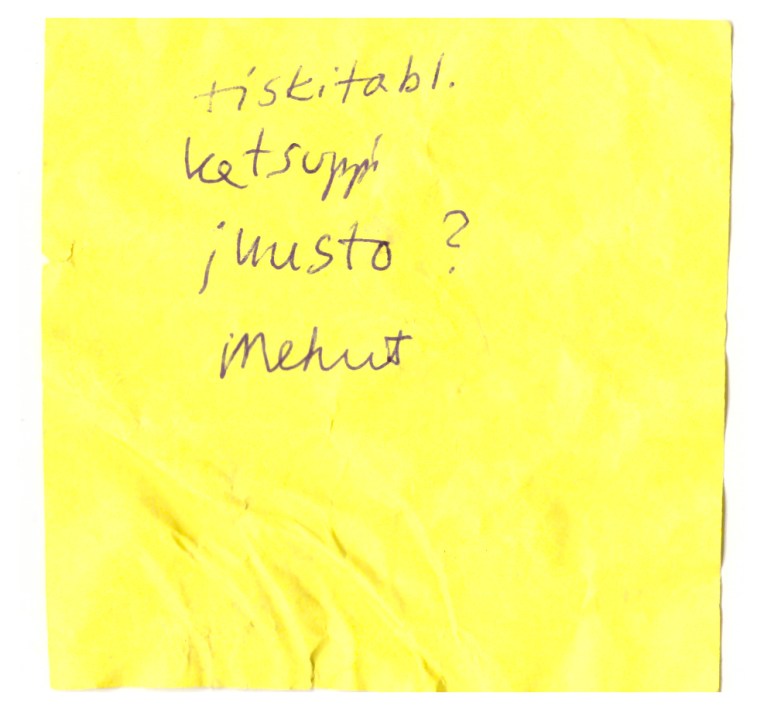 tiskitabl.
ketsuppi
juusto ?
mehut